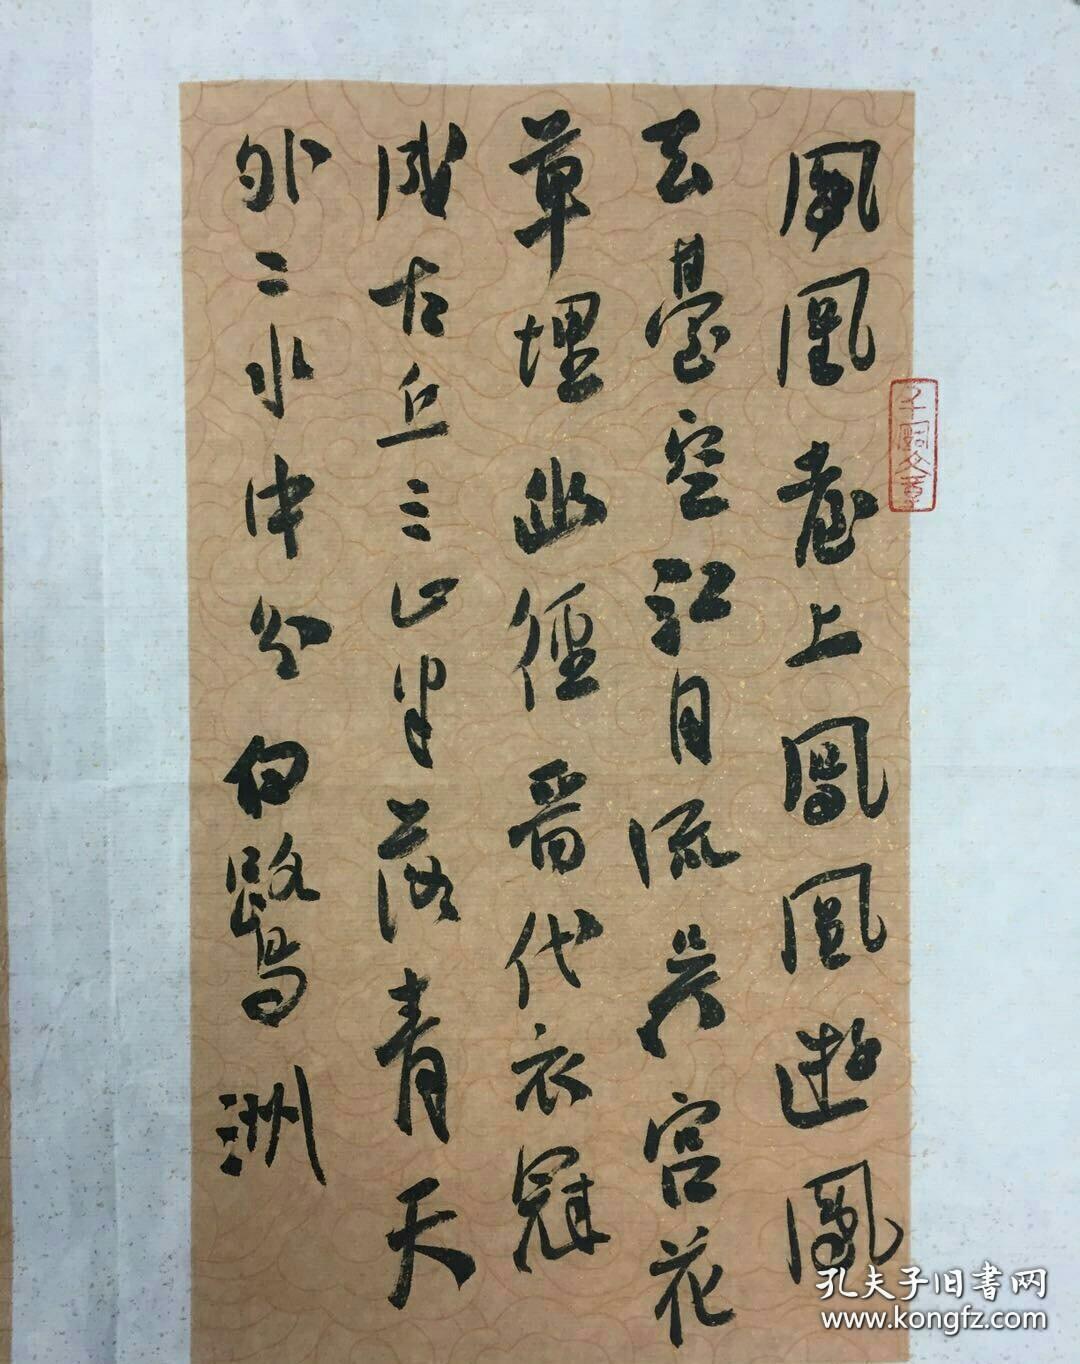 鳳凰臺上鳳凰遊鳳
去臺空江自流吳宮花
草埋幽徑晉代衣冠
成古丘三山半落青天
外二水中分白鷺洲
孔夫子旧書网
www.kongfz.com